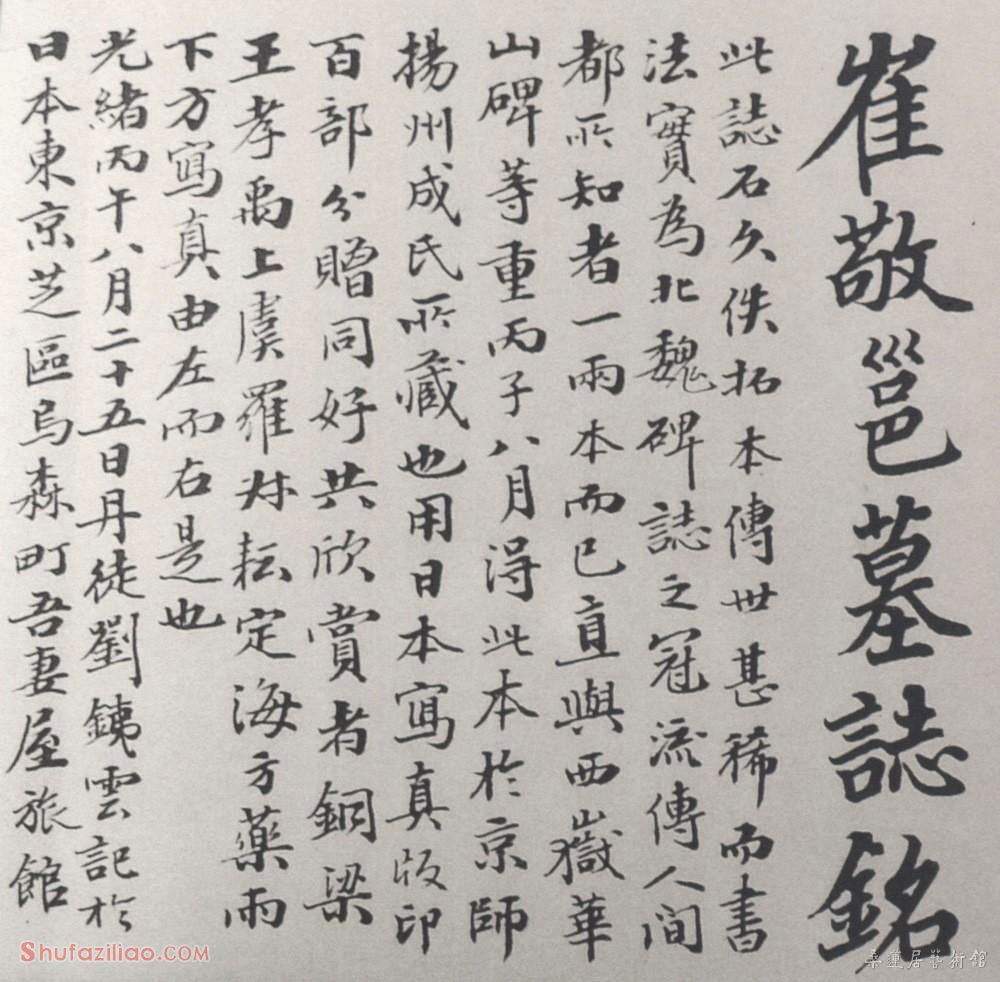 崔敬邕墓誌銘
此誌石久佚拓本傳世甚稀而書
法實為北魏碑誌之冠流傳人間
都所知者一兩本而已直與西嶽華
山碑等重丙子八月得此本於京師
揚州成氏所藏也用日本寫真版印
百部分贈同好共欣賞者銅梁
王孝禹上虞羅叔耘定海方藥雨
下方寫真由左而右是也
光緒丙午八月二十五日丹徒劉銕雲記於
日本東京芝區烏森町吾妻屋旅館
Shufaziliao.COM
桑蓮居藝術館